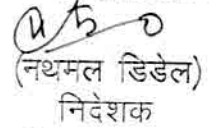 (नथमल डिडेल)
निदेशक